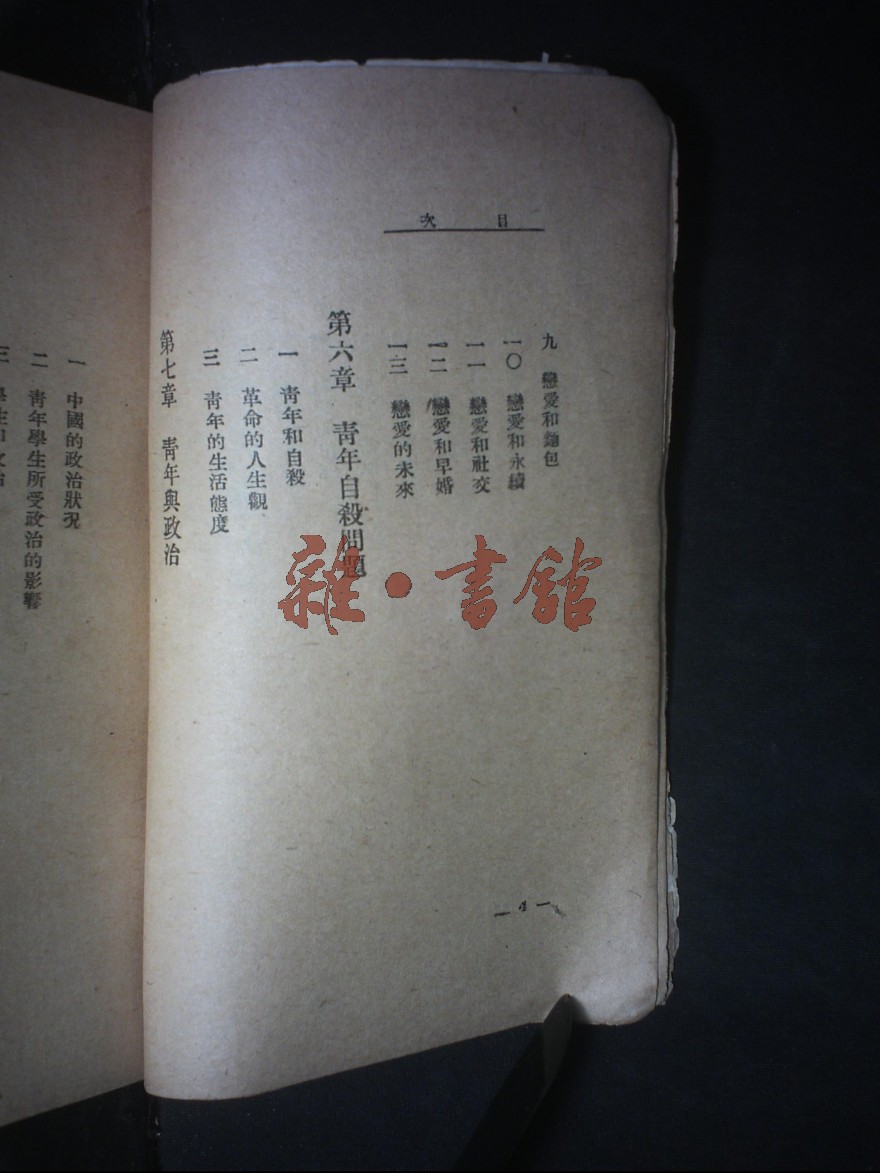 目次
九 戀愛和麵包
一〇 戀愛和永續
一一 戀愛和社交
一二 戀愛和早婚
一三 戀愛的未來
第六章 青年自殺問題
一 青年和自殺
二 革命的人生觀
三 青年的生活態度
第七章 青年與政治
一 中國的政治狀況
二 青年學生所受政治的影響
三
— 4 —
雜·書館